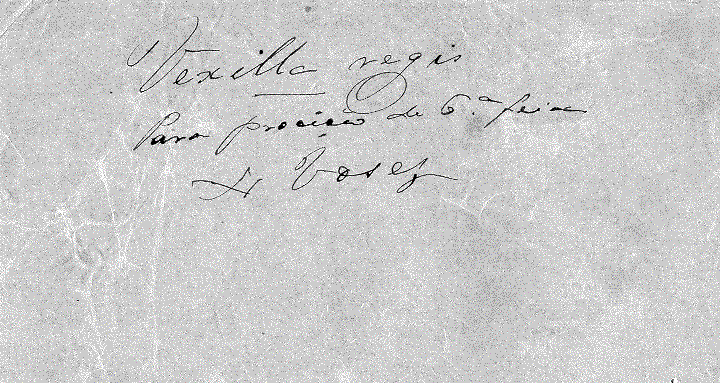 Vexilla regis
Para procição de 6.ª feira
4 Vozes